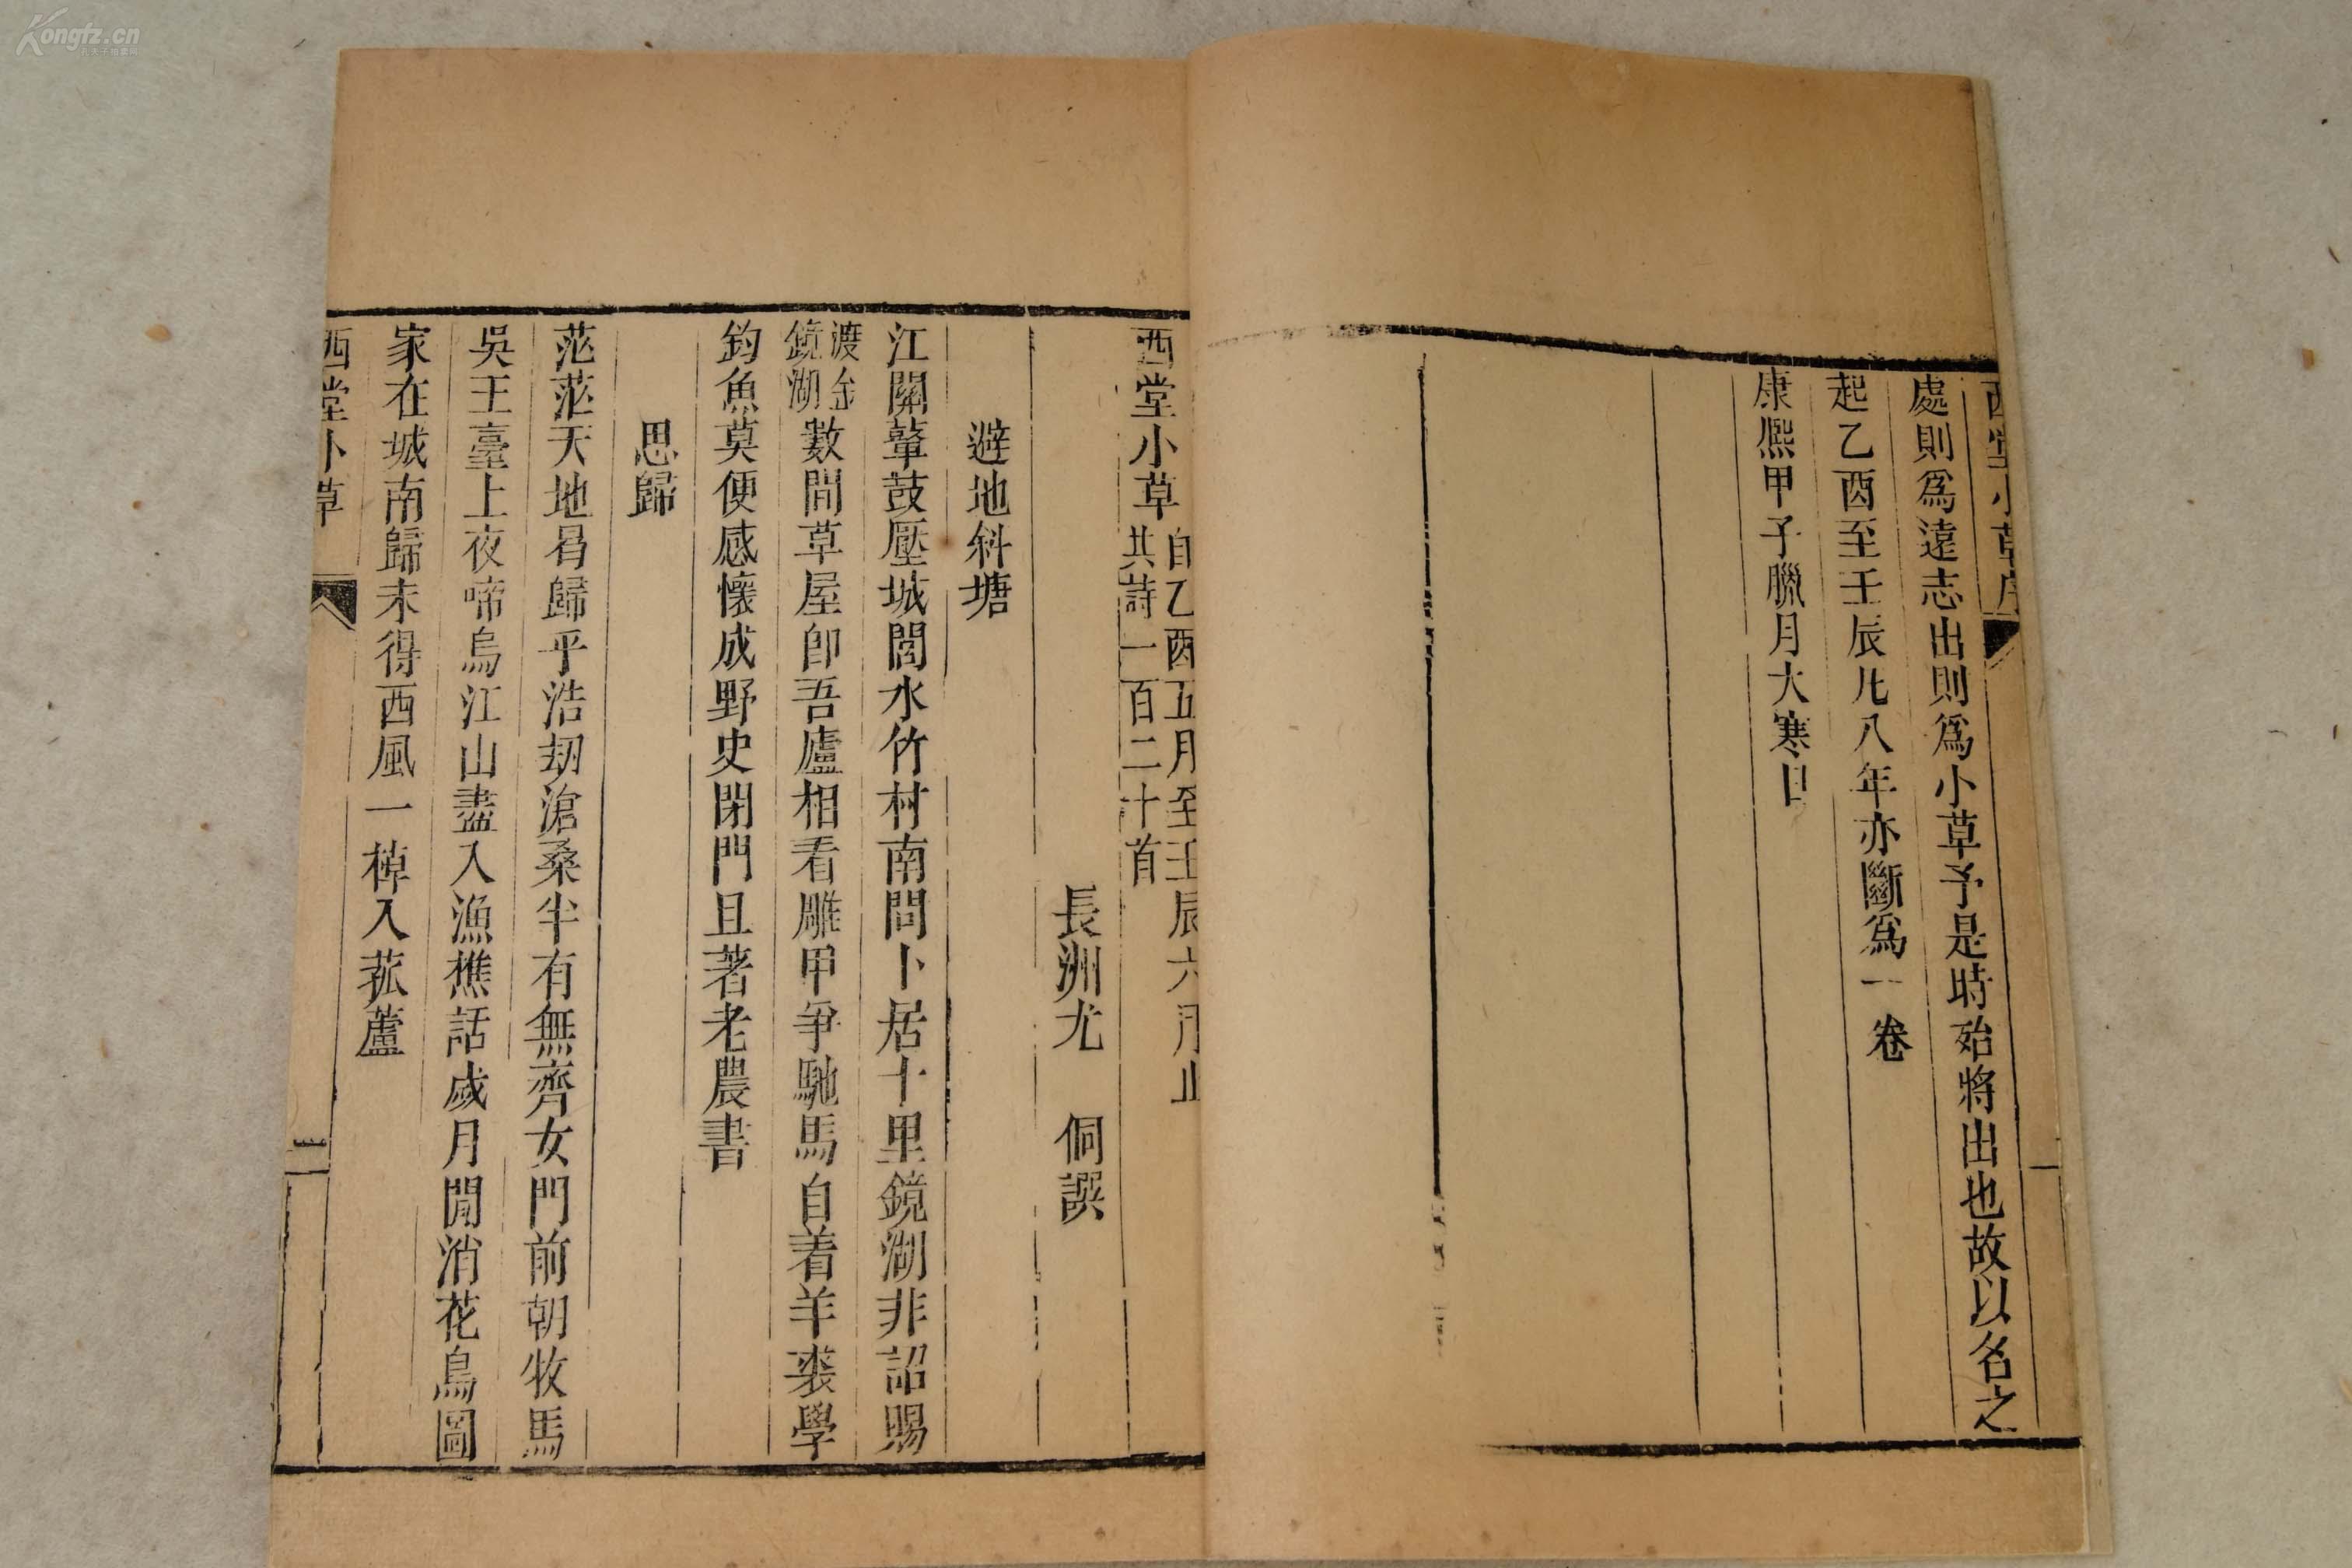 Kongfz.cn
西堂小草序
一
處則爲遠志出則爲小草予是時始將出也故以名之
起乙酉至壬辰凡八年亦斷爲一卷
康熙甲子臘月大寒日
西堂小草 自乙酉五月至壬辰六月止 共詩一百二十首
長洲尤 侗譔
避地斜塘
江關鼙鼓壓城閭水竹村南問卜居十里鏡湖非詔賜
渡金鏡湖 數間草屋卽吾廬相看雕甲爭馳馬自着羊裘學
釣魚莫便感懷成野史閉門且著老農書
思歸
茫茫天地曷歸乎浩刼滄桑半有無齊女門前朝牧馬
吳王臺上夜啼烏江山盡入漁樵話歲月閒消花鳥圖
家在城南歸未得西風一棹入菰蘆
西堂小草
二